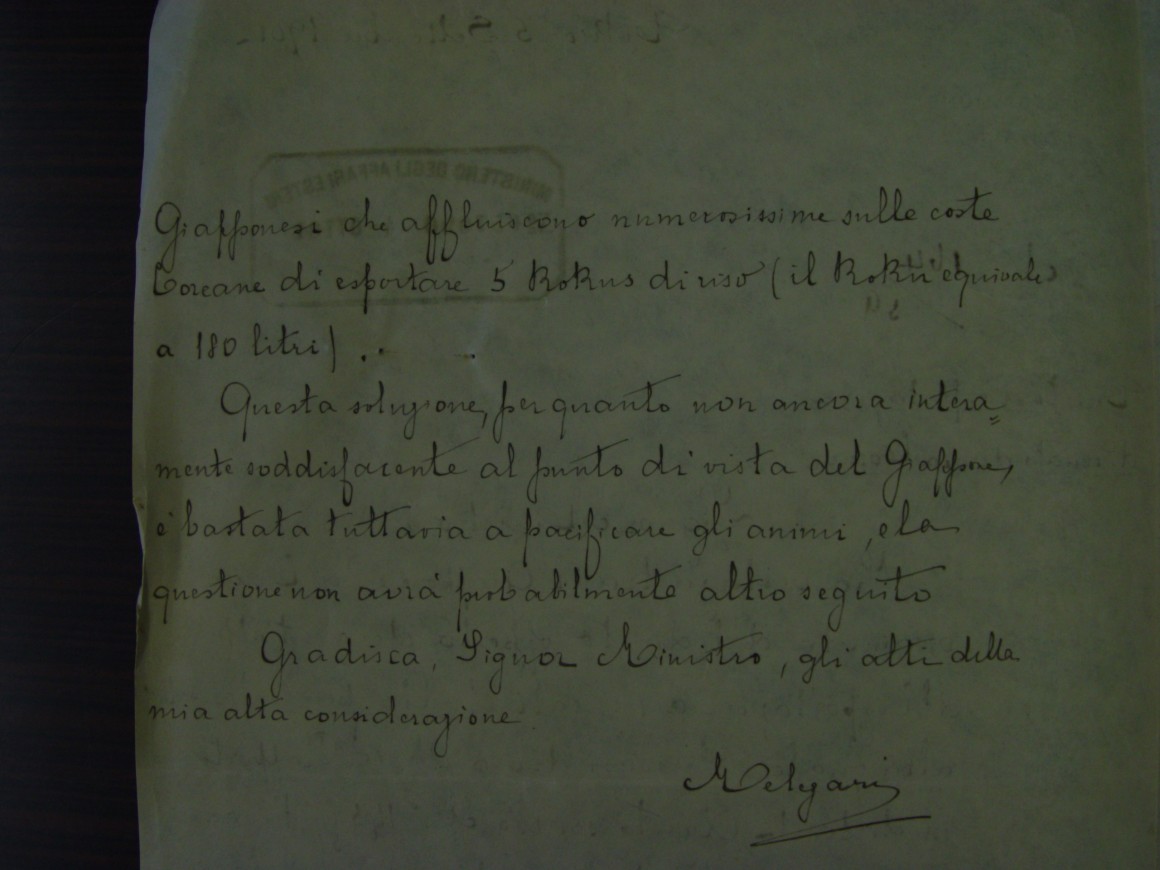 Giapponesi che affluiscono numerosissime sulle coste
Coreane di esportare 5 Kokus di riso (il Koku equivale
a 180 litri) ..
Questa soluzione, per quanto non ancora intera=
mente soddisfacente al punto di vista del Giappone,
è bastata tuttavia a pacificare gli animi, e la
questione non avrà probabilmente altro seguito
Gradisca, Signor Ministro, gli atti della
mia alta considerazione
Melegari
MINISTERO DEGLI AFFARI ESTERI